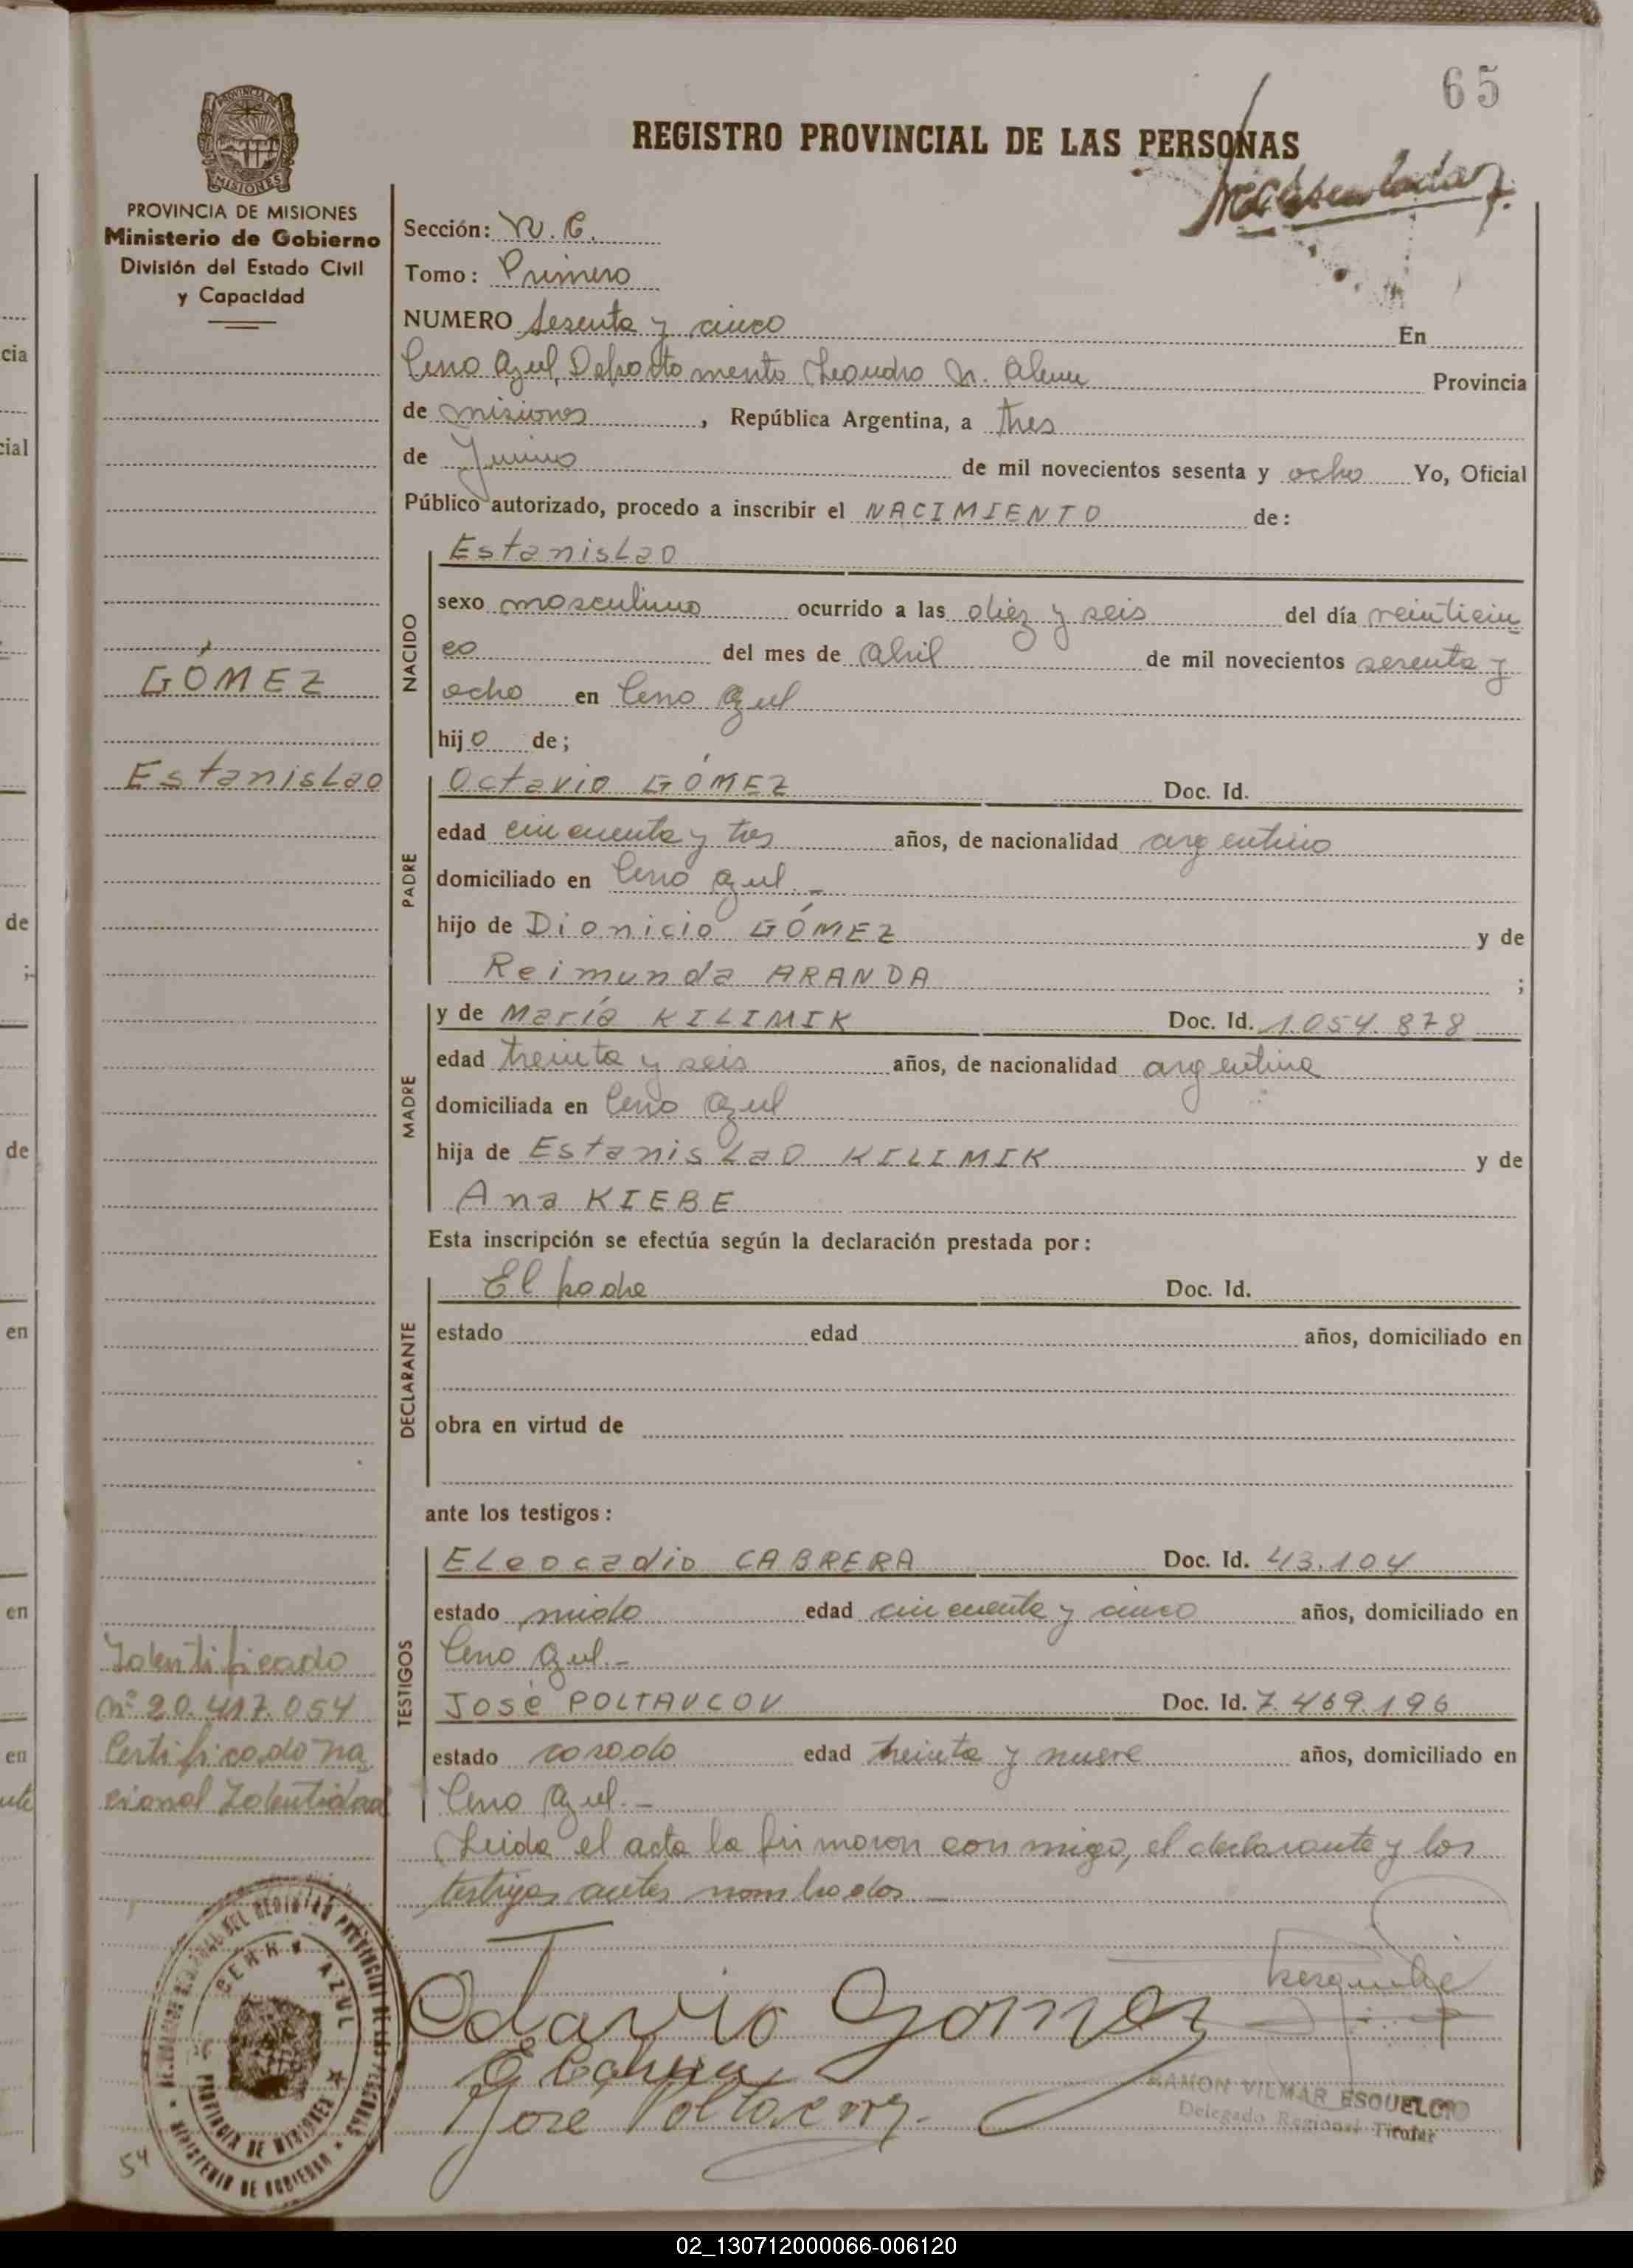 65
REGISTRO PROVINCIAL DE LAS PERSONAS
PROVINCIA DE MISIONES
Ministerio de Gobierno
División del Estado Civil
y Capacidad
Sección: N. C.
Tomo: Primero
NUMERO Sesenta y cinco En
Cerro Azul, Departamento Leandro N. Alem Provincia
de misiones, República Argentina, a tres
de Junio de mil novecientos sesenta y ocho Yo, Oficial
Público autorizado, procedo a inscribir el NACIMIENTO de:
NACIDO
Estanislao
sexo masculino ocurrido a las diez y seis del día veinticin
co del mes de Abril de mil novecientos sesenta y
ocho en Cerro Azul
hijo de;
GÓMEZ
Estanislao
PADRE
Octavio GÓMEZ Doc. Id.
edad cincuenta y tres años, de nacionalidad argentino
domiciliado en Cerro Azul.-
hijo de Dionicio GÓMEZ y de
Reimunda ARANDA ;
MADRE
y de María KILIMIK Doc. Id. 1.054.878
edad treinta y seis años, de nacionalidad argentina
domiciliada en Cerro Azul
hija de Estanislao KILIMIK y de
Ana KIEBE
Esta inscripción se efectúa según la declaración prestada por:
DECLARANTE
El padre Doc. Id.
estado edad años, domiciliado en
obra en virtud de
ante los testigos:
TESTIGOS
Eleocadio CABRERA Doc. Id. 43.104
estado viudo edad cincuenta y cinco años, domiciliado en
Cerro Azul.-
José POLTAVCOV Doc. Id. 7.469.196
estado casado edad treinta y nueve años, domiciliado en
Cerro Azul.-
Leida el acta la firmaron conmigo, el declarante y los
testigos antes nombrados.-
Identificado
nº 20.417.054
Certificado na
cional Identidad
Octavio Gomez
E Cabrera
José
RAMON VILMAR ESQUELCIO
Delegado Regional Titular
CERRO AZUL
PROVINCIA DE MISIONES
MINISTERIO DE GOBIERNO
54
cia
cial
de
;
de
en
en
en
02_130712000066-006120